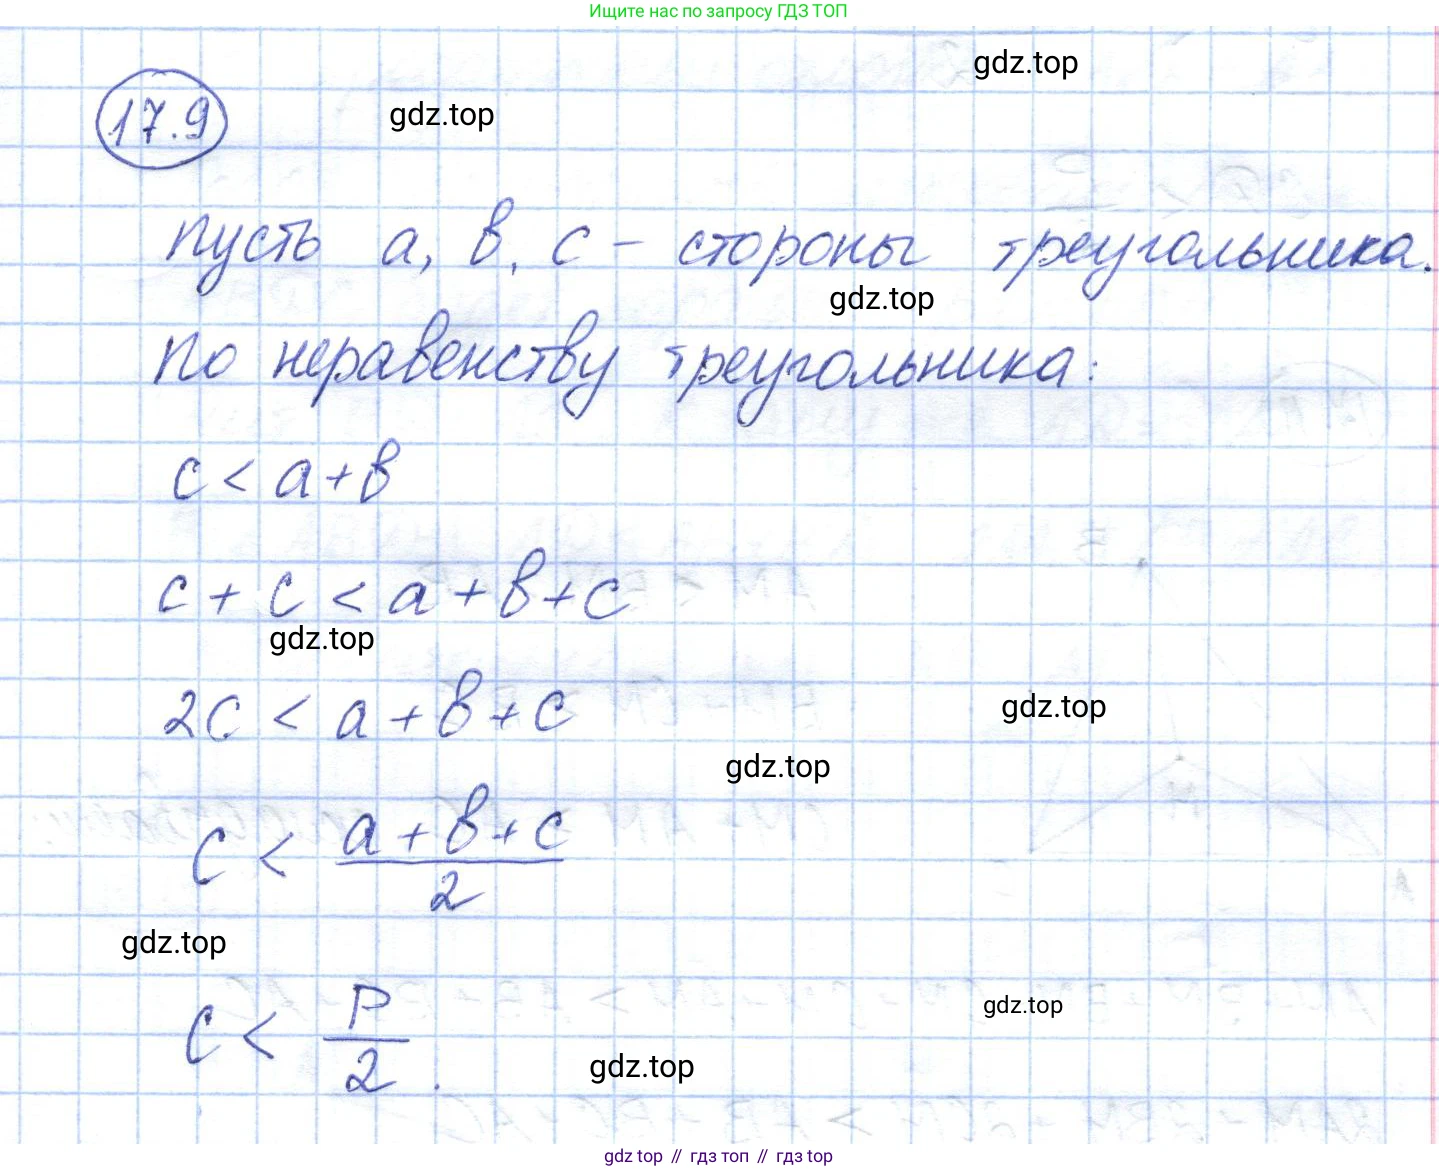 Ищите нас по запросу ГДЗ ТОП
gdz.top
17.9
gdz.top
пусть a, b, c – стороны треугольника.
gdz.top
по неравенству треугольника:
c < a + b
c + c < a + b + c
gdz.top
2c < a + b + c
gdz.top
gdz.top
c < (a + b + c)/2
gdz.top
c < P/2.
gdz.top
gdz.top
gdz top // гдз топ // гдз top